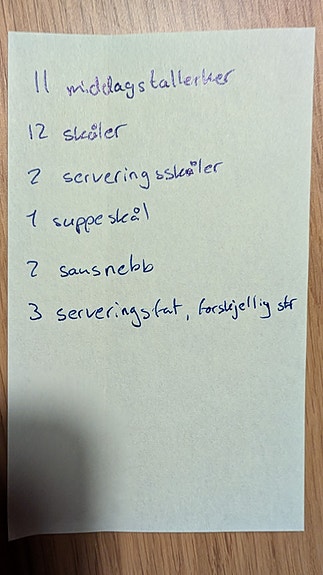 11 middagstallerker
12 skåler
2 serveringsskåler
1 suppeskål
2 sausnebb
3 serveringsfat, forskjellig str